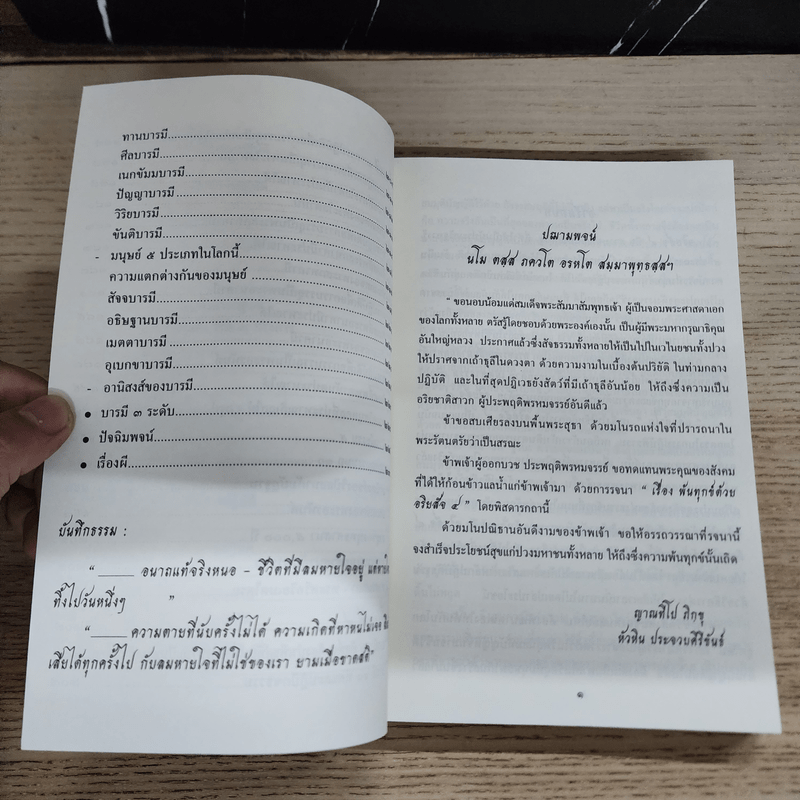 ทานบารมี
ศีลบารมี
เนกขัมมบารมี
ปัญญาบารมี
วิริยบารมี
ขันติบารมี
- มนุษย์ ๕ ประเภทในโลกนี้
ความแตกต่างกันของมนุษย์
สัจจบารมี
อธิษฐานบารมี
เมตตาบารมี
อุเบกขาบารมี
- อานิสงส์ของบารมี
• บารมี ๓ ระดับ
• ปัจฉิมพจน์
• เรื่องผี
บันทึกธรรม :
“ ____ อนาถแท้จริงหนอ - ชีวิตที่มีลมหายใจอยู่
ทิ้งไปวันหนึ่งๆ ”
“ ____ ความตายที่นับครั้งไม่ได้ ความเกิดที่หาหนไม่เจอ
เสียได้ทุกครั้งไป กับลมหายใจที่ไม่ใช่ของเรา ยามเมื่อขาดสติ”
ปฌามพจน์
นโม ตสฺส ภควโต อรหโต สมฺมาพุทธสฺสฯ
“ ขอนอบน้อมแด่สมเด็จพระสัมมาสัมพุทธเจ้า ผู้เป็นจอมพระศาสดาเอก
ของโลกทั้งหลาย ตรัสรู้โดยชอบด้วยพระองค์เองนั้น เป็นผู้มีพระมหากรุณาธิคุณ
อันใหญ่หลวง ประกาศแล้วซึ่งสัจธรรมทั้งหลายให้เป็นไปในเวไนยชนทั้งปวง
ให้ปราศจากเถ้าธุลีในดวงตา ด้วยความงามในเบื้องต้นปริยัติ ในท่ามกลาง
ปฏิบัติ และในที่สุดปฏิเวธยังสัตว์ที่มีเถ้าธุลีอันน้อย ให้ถึงซึ่งความเป็น
อริยชาติสาวก ผู้ประพฤติพรหมจรรย์อันดีแล้ว
ข้าขอสบเศียรลงบนพื้นพระสุธา ด้วยมโนรถแห่งใจที่ปรารถนาใน
พระรัตนตรัยว่าเป็นสรณะ
ข้าพเจ้าผู้ออกบวช ประพฤติพรหมจรรย์ ขอทดแทนพระคุณของสังคม
ที่ได้ให้ก้อนข้าวแลน้ำแก่ข้าพเจ้ามา ด้วยการรจนา “ เรื่อง พ้นทุกข์ด้วย
อริยสัจ ๔ ” โดยพิสดารกถานี้
ด้วยมโนปณิธานอันดีงามของข้าพเจ้า ขอให้อรรถวรรณาที่รจนานี้
จงสำเร็จประโยชน์สุขแก่ปวงมหาชนทั้งหลาย ให้ถึงซึ่งความพ้นทุกข์นั้นเถิด
ญาณทีโป ภิกขุ
หัวหิน ประจวบคีรีขันธ์
๑